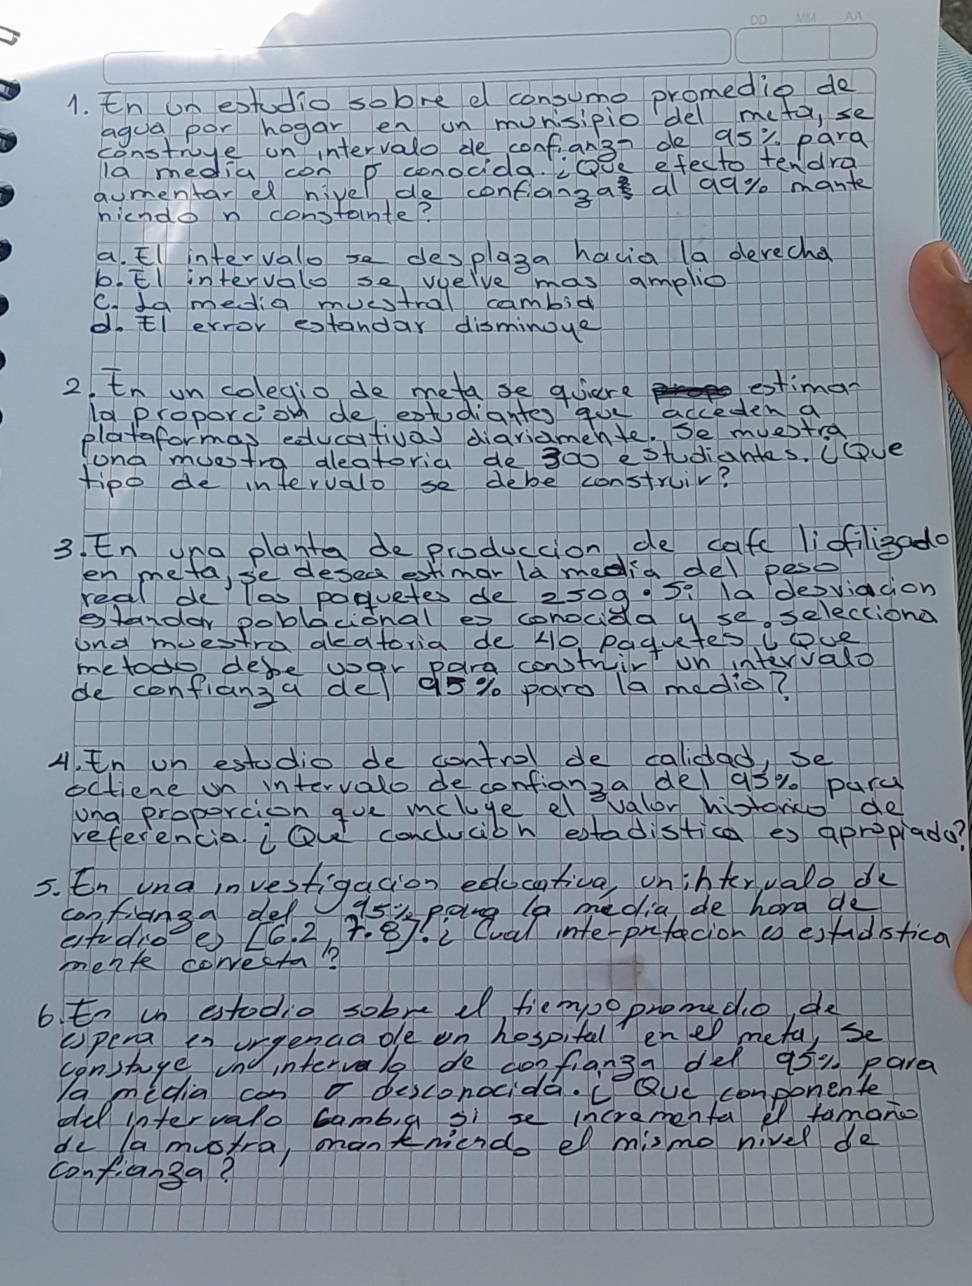 DD MM AA
1. En un estudio sobre el consumo promedio de
agua por hogar en un munisipio del meta, se
construye un intervalo de confianza de 95% para
la media con σ conocida. ¿Que efecto tendra
aumentar el nivel de confianza al 99% mante
niendo n constante?
a. El intervalo se desplaza hacia la derecha
b. El intervalo se vuelve mas amplio
c. La media muestral cambia
d. El error estandar disminuye
2. En un colegio de meta se quiere estimar
la proporcion de estudiantes que acceden a
plataformas educativas diariamente. Se muestra
una muestra aleatoria de 300 estudiantes. ¿Que
tipo de intervalo se debe construir?
3. En una planta de produccion de cafe liofilizado
en meta, se desea estimar la media del peso
real de los paquetes de 250g. Si la desviacion
estandar poblacional es conocida y se selecciona
una muestra aleatoria de 40 paquetes ¿Que
metodo debe usar para construir un intervalo
de confianza del 95% para la media?
4. En un estudio de control de calidad, se
octiene un intervalo de confianza del 95% para
una proporcion que incluye el valor historico de
referencia. ¿Que conclucion estadistica es apropiada?
5. En una investigacion educativa, un intervalo de
confianza del 95% para la media de hora de
estudio es [6.2, 7.8]. ¿Cual interpretacion es estadistica
mente correcta?
6. En un estudio sobre el tiempo promedio de
espera en urgencia de un hospital en el meta, se
construye un intervalo de confianza del 95% para
la media con σ desconocida. ¿Que componente
del intervalo cambia si se incrementa el tamaño
de la mustra, manteniendo el mismo nivel de
confianza?